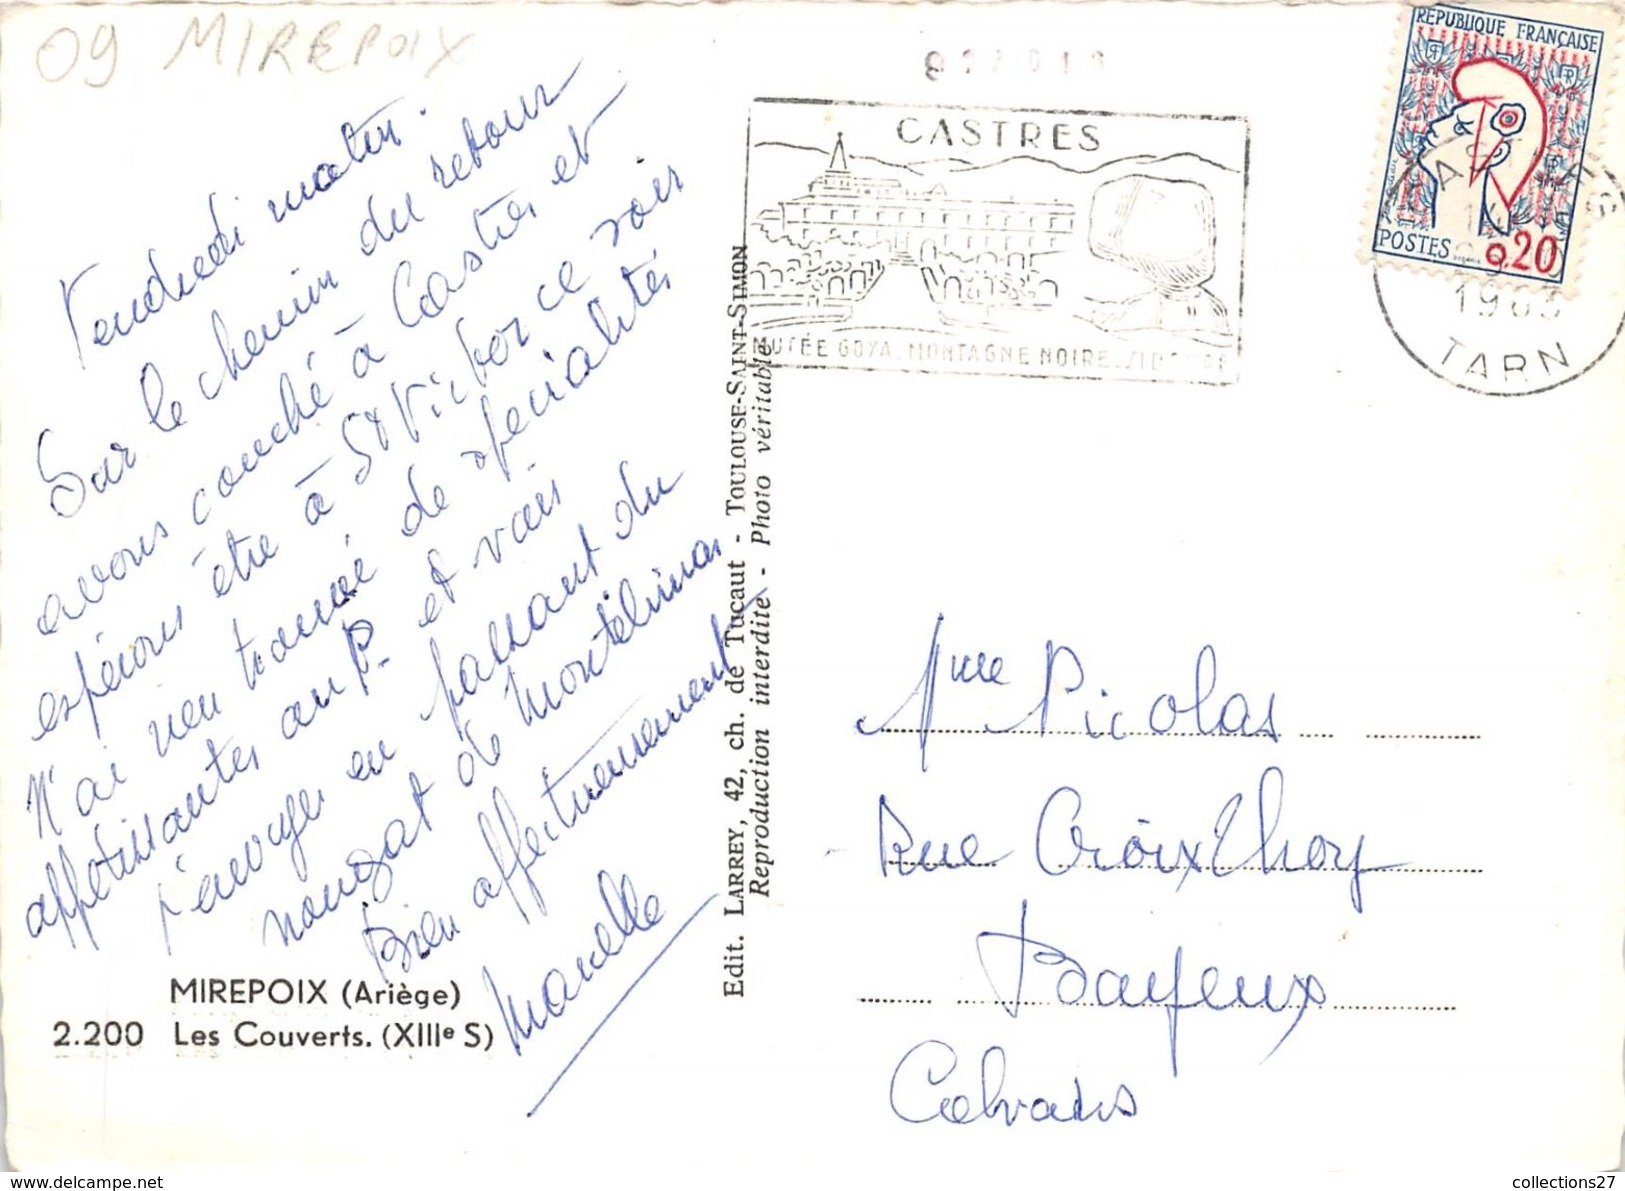 09 MIREPOIX
Vendredi matin.
Sur le chemin du retour
avons couché à Castres et
espérons être à St Victor ce soir
N'ai rien trouvé de spécialités
appétissantes au P. et vais
t'envoyer en passant du
nougat de Montélimar
Bien affectueusement
Marcelle
MIREPOIX (Ariège)
2.200 Les Couverts. (XIIIe S)
Edit. LARREY, 42, ch. de Tucaut - TOULOUSE-SAINT-SIMON
Reproduction interdite - Photo véritable
CASTRES
MUSÉE GOYA. MONTAGNE NOIRE. SIDOBRE
REPUBLIQUE FRANÇAISE
POSTES 0,20
TARN
Mme Picolas
Rue Croix Thoy
Bayeux
Calvados
collections27